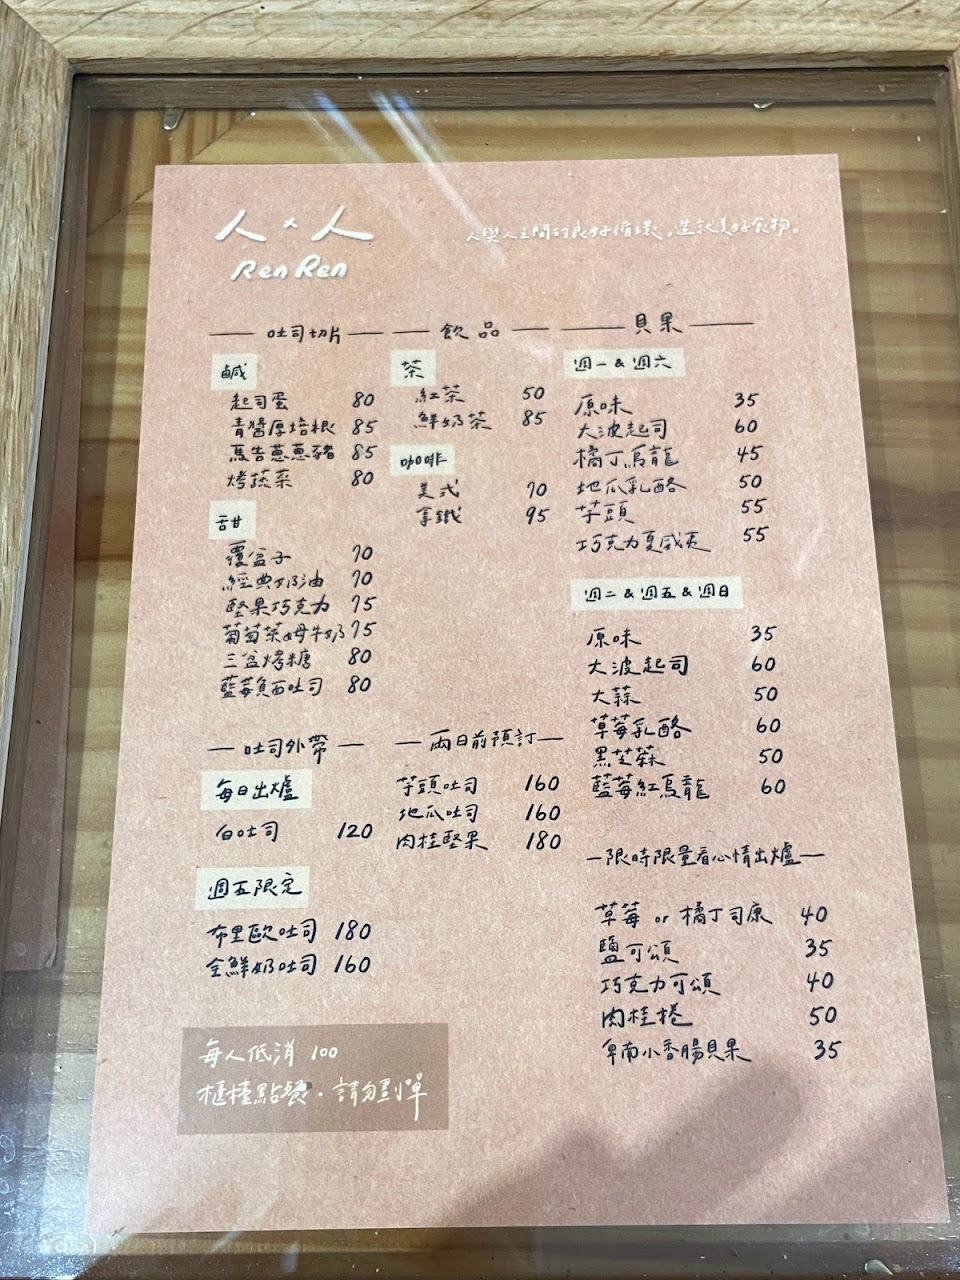 人×人
Ren Ren
人與人之間的良好循環,造就美好食物。
吐司切片
鹹
起司蛋 80
青醬厚培根 85
馬告蔥蔥豬 85
烤蔬菜 80
甜
覆盆子 70
經典奶油 70
堅果巧克力 75
葡萄萊姆牛奶 75
三盆烤糖 80
藍莓負面吐司 80
飲品
茶
紅茶 50
鮮奶茶 85
咖啡
美式 70
拿鐵 95
貝果
週一&週六
原味 35
大波起司 60
橘丁烏龍 45
地瓜乳酪 50
芋頭 55
巧克力夏威夷 55
週二&週五&週日
原味 35
大波起司 60
大蒜 50
草莓乳酪 60
黑芝蔴 50
藍莓紅烏龍 60
吐司外帶
每日出爐
白吐司 120
週五限定
布里歐吐司 180
全鮮奶吐司 160
兩日前預訂
芋頭吐司 160
地瓜吐司 160
肉桂堅果 180
限時限量看心情出爐
草莓 or 橘丁司康 40
鹽可頌 35
巧克力可頌 40
肉桂捲 50
卑南小香腸貝果 35
每人低消 100
櫃檯點餐.請勿劃單